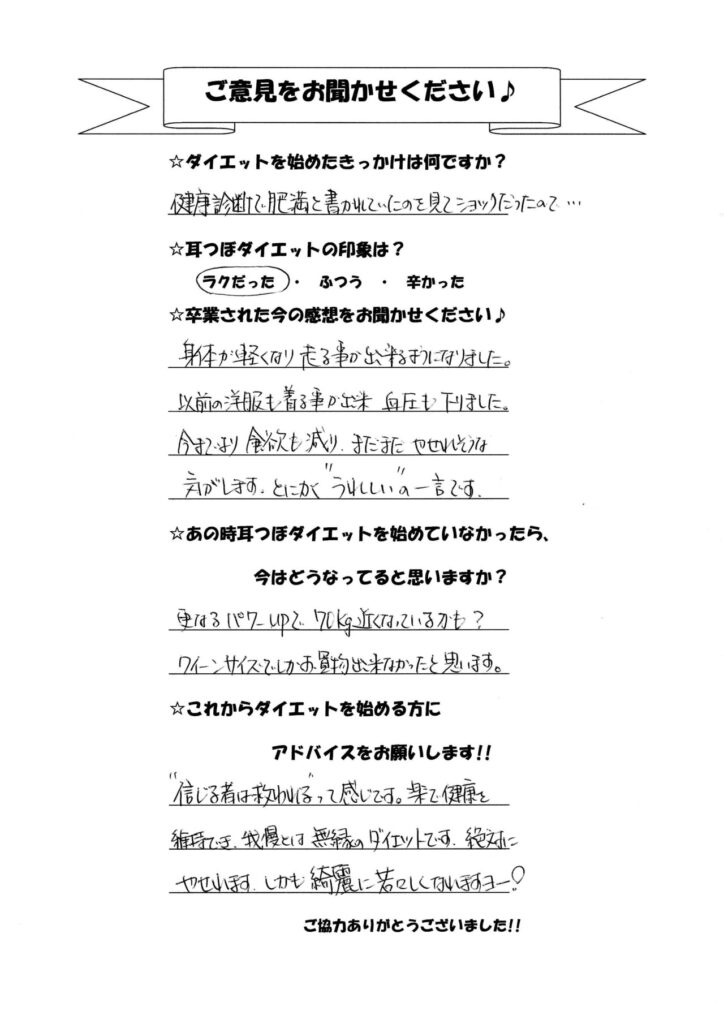 ご意見をお聞かせください♪
☆ダイエットを始めたきっかけは何ですか？
健康診断で肥満と書かれていたのを見てショックだったので…
☆耳つぼダイエットの印象は？
ラクだった ・ ふつう ・ 辛かった
☆卒業された今の感想をお聞かせください♪
身体が軽くなり走る事が出来るようになりました。
以前の洋服も着る事が出来 血圧も下りました。
今までより食欲も減り、まだまだ やせれそうな
気がします。とにかく"うれしい"の一言です。
☆あの時耳つぼダイエットを始めていなかったら、
今はどうなってると思いますか？
更なるパワーupで 70kg近くなっているかも？
クイーンサイズでしかお買物出来なかったと思います。
☆これからダイエットを始める方に
アドバイスをお願いします!!
"信じる者は救われる"って感じです。楽で健康を
維持でき、我慢とは無縁のダイエットです。絶対に
やせれます。しかも綺麗に若々しくなれますヨー!
ご協力ありがとうございました!!